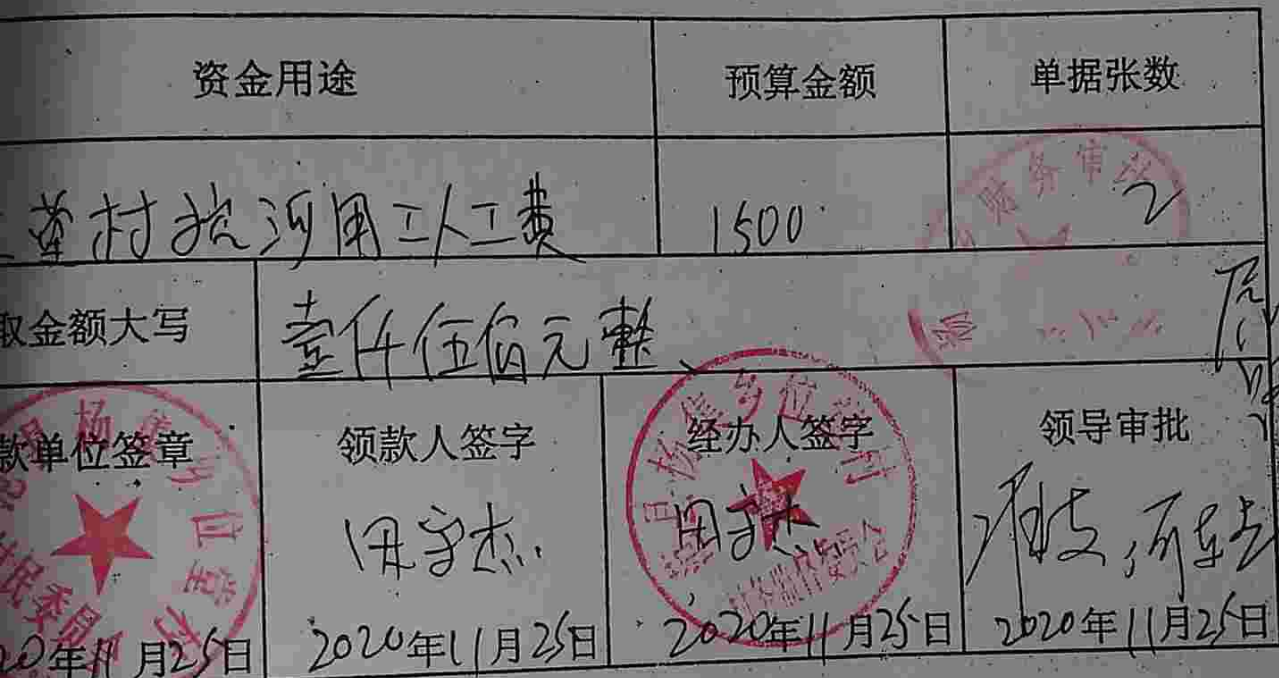 资金用途 预算金额 单据张数
村挖河用工人工费 1500 2
取金额大写 壹仟伍佰元整
款单位签章 领款人签字 经办人签字 领导审批
田守杰 田守杰 准支
20年11月25日 2020年11月25日 2020年11月25日 2020年11月25日
财务审
杨集乡位堂村
民委员
杨集乡位 村
务监督委员会